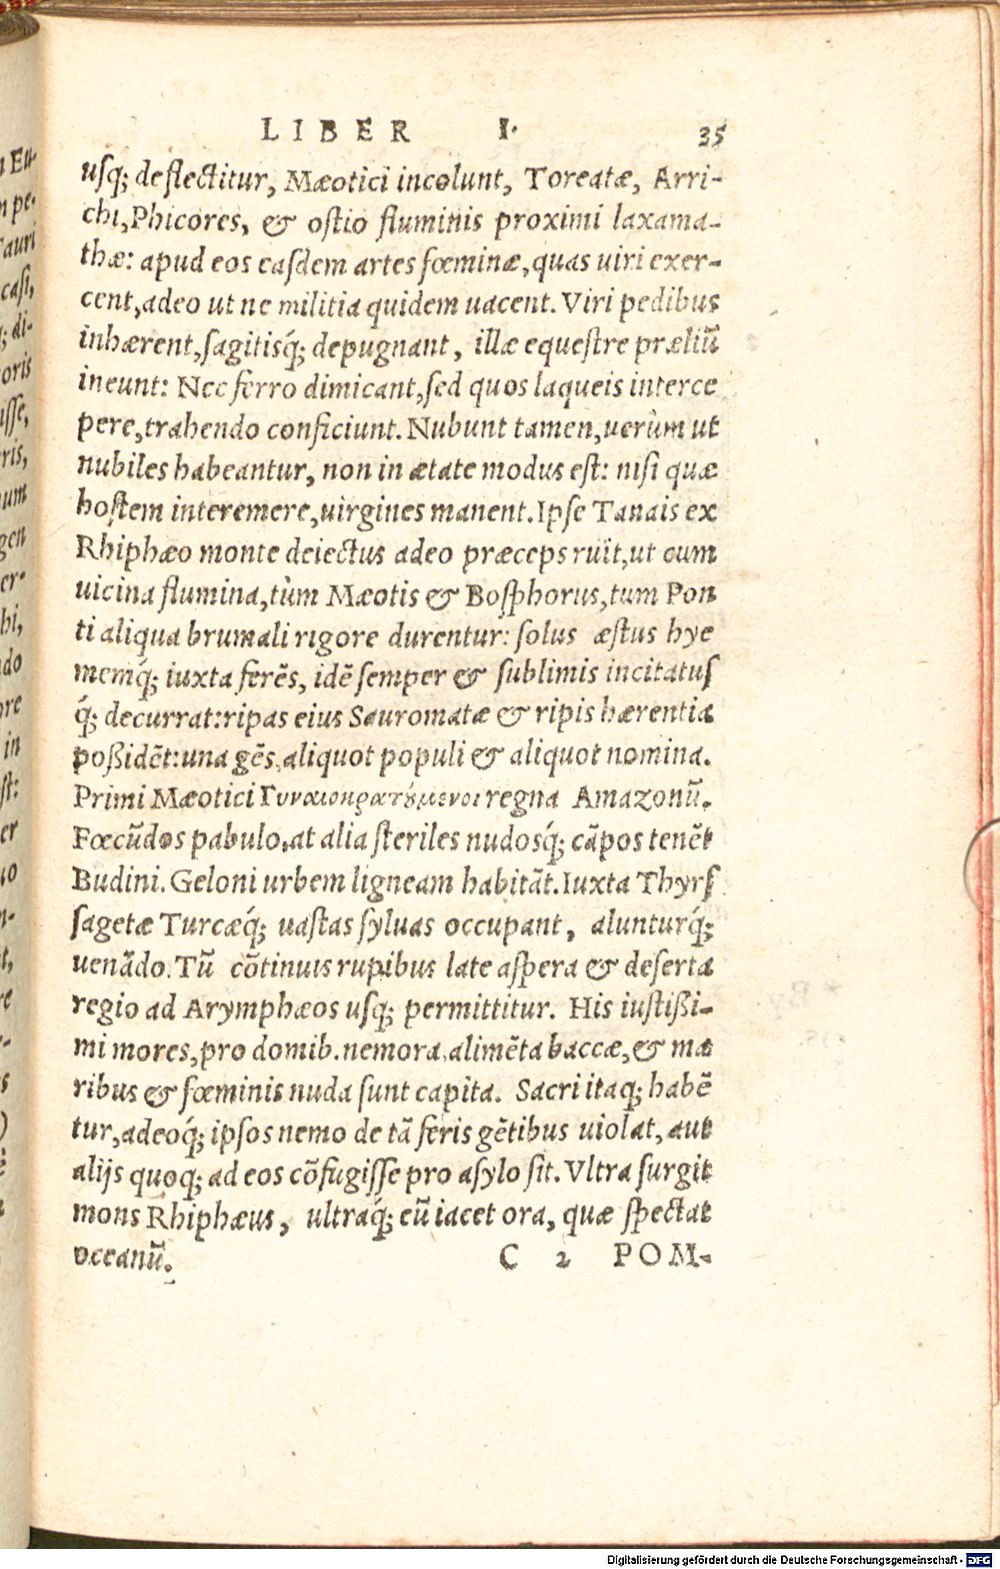 LIBER I. 35
usq; deflectitur, Mæotici incolunt, Toreatæ, Arri-
chi, Phicores, & ostio fluminis proximi Iaxama-
thæ: apud eos easdem artes fœminæ, quas uiri exer-
cent, adeo ut ne militia quidem uacent. Viri pedibus
inhærent, sagitisq́; depugnant, illæ equestre præliū
ineunt: Nec ferro dimicant, sed quos laqueis interce
pere, trahendo conficiunt. Nubunt tamen, uerùm ut
nubiles habeantur, non in ætate modus est: nisi quæ
hostem interemere, uirgines manent. Ipse Tanais ex
Rhiphæo monte deiectus adeo præceps ruit, ut cum
uicina flumina, tùm Mæotis & Bosphorus, tum Pon
ti aliqua brumali rigore durentur: solus æstus hye
memq́; iuxta ferēs, idē semper & sublimis incitatus
q́; decurrat: ripas eius Sauromatæ & ripis hærentia
possidēt: una gēs, aliquot populi & aliquot nomina.
Primi Mæotici Γυναικοκρατούμενοι regna Amazonū.
Fœcūdos pabulo, at alia steriles nudosq́; cāpos tenēt
Budini. Geloni urbem ligneam habitāt. Iuxta Thyrs
sagetæ Turcæq́; uastas syluas occupant, alunturq́;
uenādo. Tū cōtinuis rupibus late aspera & deserta
regio ad Arymphæos usq; permittitur. His iustissi-
mi mores, pro domib. nemora, alimēta baccæ, & ma
ribus & fœminis nuda sunt capita. Sacri itaq; habē
tur, adeoq́; ipsos nemo de tā feris gētibus uiolat, aut
alijs quoq; ad eos cōfugisse pro asylo sit. Vltra surgit
mons Rhiphæus, ultraq́; eū iacet ora, quæ spectat
oceanū.
C 2 POM-
Digitalisierung gefördert durch die Deutsche Forschungsgemeinschaft - DFG